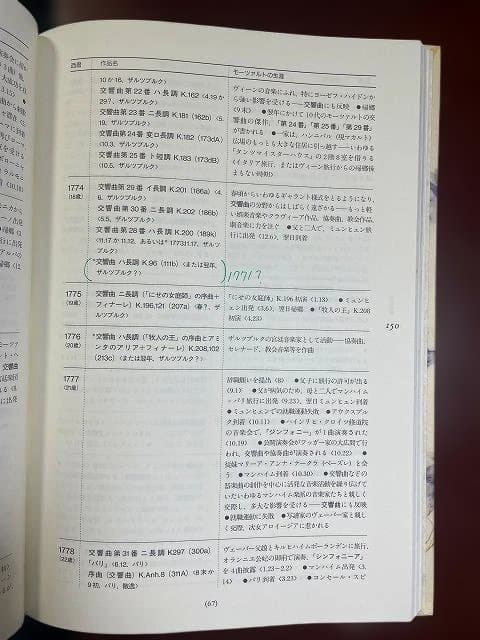 西暦 作品名 モーツァルトの生涯
10か16、ザルツブルク)
交響曲第22番 ハ長調 K.162 (4.19か
29?、ザルツブルク)
交響曲第23番 ニ長調 K.181 (162b) (5.
19、ザルツブルク)
交響曲第24番 変ロ長調 K.182 (173dA)
(10.3、ザルツブルク)
交響曲第25番 ト短調 K.183 (173dB)
(10.5、ザルツブルク)
ヴィーンの音楽にふれ、特にヨーゼフ・ハイドンか
ら強い影響を受ける——交響曲にも反映 ●帰郷
(9末) ●翌年にかけて10代のモーツァルトの交響
曲の傑作、「第24番」「第25番」「第29番」
が書かれる ●一家は、ハンニバル(現マカルト)
広場のもっとも大きな住居に引っ越す——いわゆる
「タンツマイスターハウス」の2階8室を借りる
(イタリア旅行、またはヴィーン旅行からの帰郷後
まもない時期)
1774
(18歳)
交響曲第29番 イ長調 K.201 (186a) (4.
6、ザルツブルク)
交響曲第30番 ニ長調 K.202 (186b)
(5.5、ザルツブルク)
交響曲第28番 ハ長調 K.200 (189k)
(11.17か11.12、あるいは*177311.17、ザルツ
ブルク)
*交響曲 ハ長調 K.96 (111b) (または翌年、
ザルツブルク?)
1771?
春頃からいわゆるギャラント様式をとるようになり、
交響曲の分野からはしばらく遠ざかる——もっと軽
い娯楽音楽やクラヴィーア作品、協奏曲、教会作品、
劇音楽に力を注ぐ ●父と二人で、ミュンヒェン旅
行に出発 (12.6)、翌日到着
1775
(19歳)
交響曲 ニ長調 (「にせの女庭師」の序曲+
フィナーレ) K.196,121 (207a) (春?、ザル
ツブルク?)
「にせの女庭師」K.196初演 (1.13) ●ミュンヒ
ェン出発 (3.6)、翌日帰郷 ●「牧人の王」K.208
初演 (4.23)
150
1776
(20歳)
*交響曲 ハ長調 (「牧人の王」の序曲とアミ
ンタのアリア+フィナーレ) K.208,102
(213c) (または翌年、ザルツブルク?)
ザルツブルクの宮廷音楽家として活動——協奏曲、
セレナード、教会音楽等を作曲
1777
(21歳)
辞職願いを提出 (8) ●父子に旅行の許可が出る
(9.1) ●父が病気のため、母と二人でマンハイム
=パリ旅行に出発 (9.23)、翌日ミュンヒェン到着
●ミュンヒェンでの就職運動失敗 ●アウクスブル
ク到着 (10.11) ●ハインリヒ・クロイツ修道院
の音楽会で、「ジンフォニー」が1曲演奏された
(10.19) ●公開演奏会がフッガー家の大広間で行
われ、交響曲や協奏曲が演奏される (10.22) ●
従妹マリーア・アンナ・テークラ (ベーズレ) を会
う ●マンハイム到着 (10.30) ●交響曲などの
器楽曲の創作を中心に活発な音楽活動を繰り広げて
いたいわゆるマンハイム楽派の音楽家たちと親しく
交際し、多大な影響を受ける——交響曲にも反映
●就職運動に失敗 ●写譜家のヴェーバー家と親し
く交際、次女アロイージアに惹かれる
1778
(22歳)
交響曲第31番 ニ長調 K297 (300a)
「パリ」 (6.12、パリ)
序曲(交響曲) K.Anh.8 (311A) (8末か
9初、パリ、散逸)
ヴェーバー父娘とキルヒハイムボーランデンに旅行、
オラニエ公妃の別邸で演奏、「ジンフォニーア」
を4曲披露 (1.23-2.2) ●マンハイム出発 (3.
14) ●パリ到着 (3.23) ●コンセール・スピ
(67)